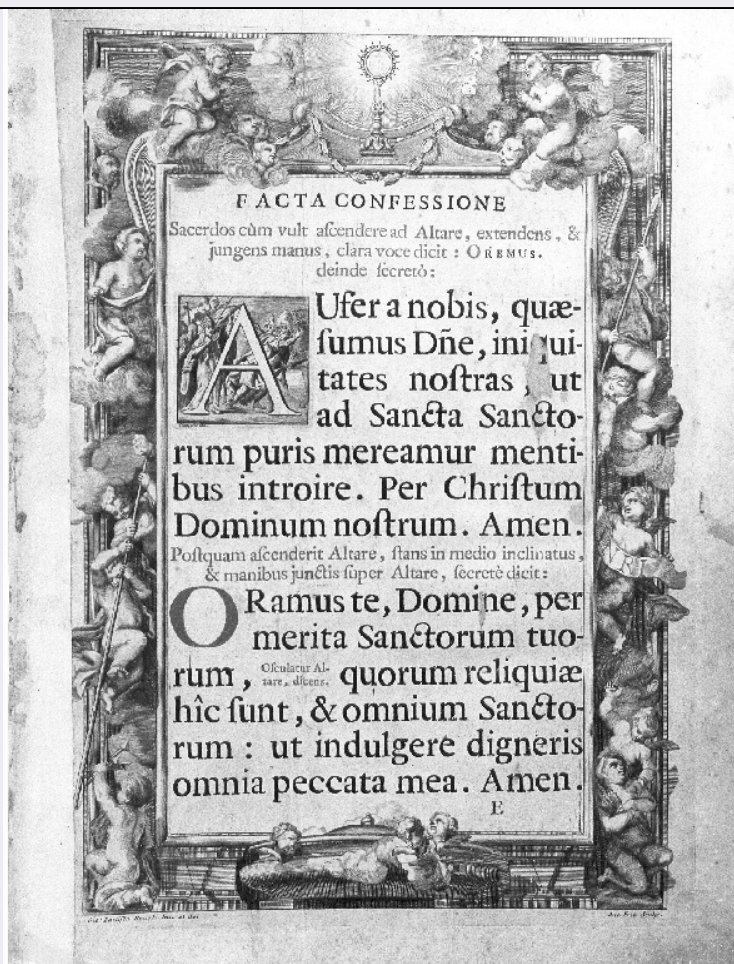 FACTA CONFESSIONE
Sacerdos cùm vult aſcendere ad Altare, extendens, &
jungens manus, clara voce dicit : OREMUS.
deinde ſecretò:
AUfer a nobis, quæ-
ſumus Dñe, iniqui-
tates noſtras, ut
ad Sancta Sancto-
rum puris mereamur menti-
bus introire. Per Chriſtum
Dominum noſtrum. Amen.
Poſtquam aſcenderit Altare, ſtans in medio inclinatus,
& manibus junctis ſuper Altare, ſecretè dicit:
ORamus te, Domine, per
merita Sanctorum tuo-
rum, Oſculatur Al-
tare, dicens. quorum reliquiæ
hîc ſunt, & omnium Sancto-
rum : ut indulgere digneris
omnia peccata mea. Amen.
E